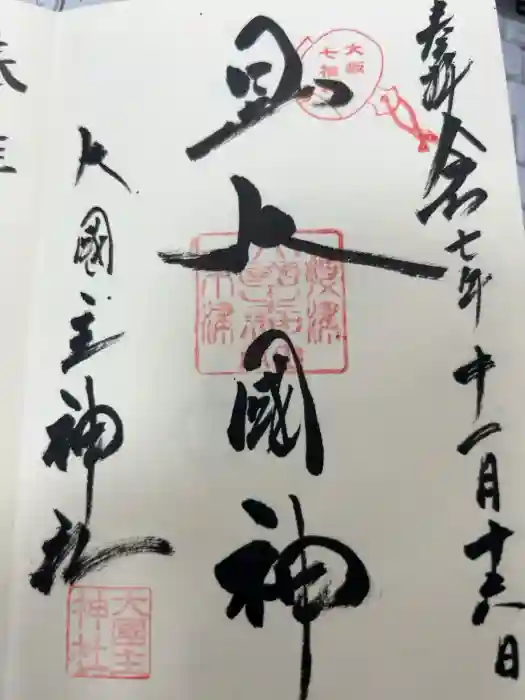 奉拝 令和七年十一月十六日
大阪
七福
日出大國神
大國主神社
大國主
神社